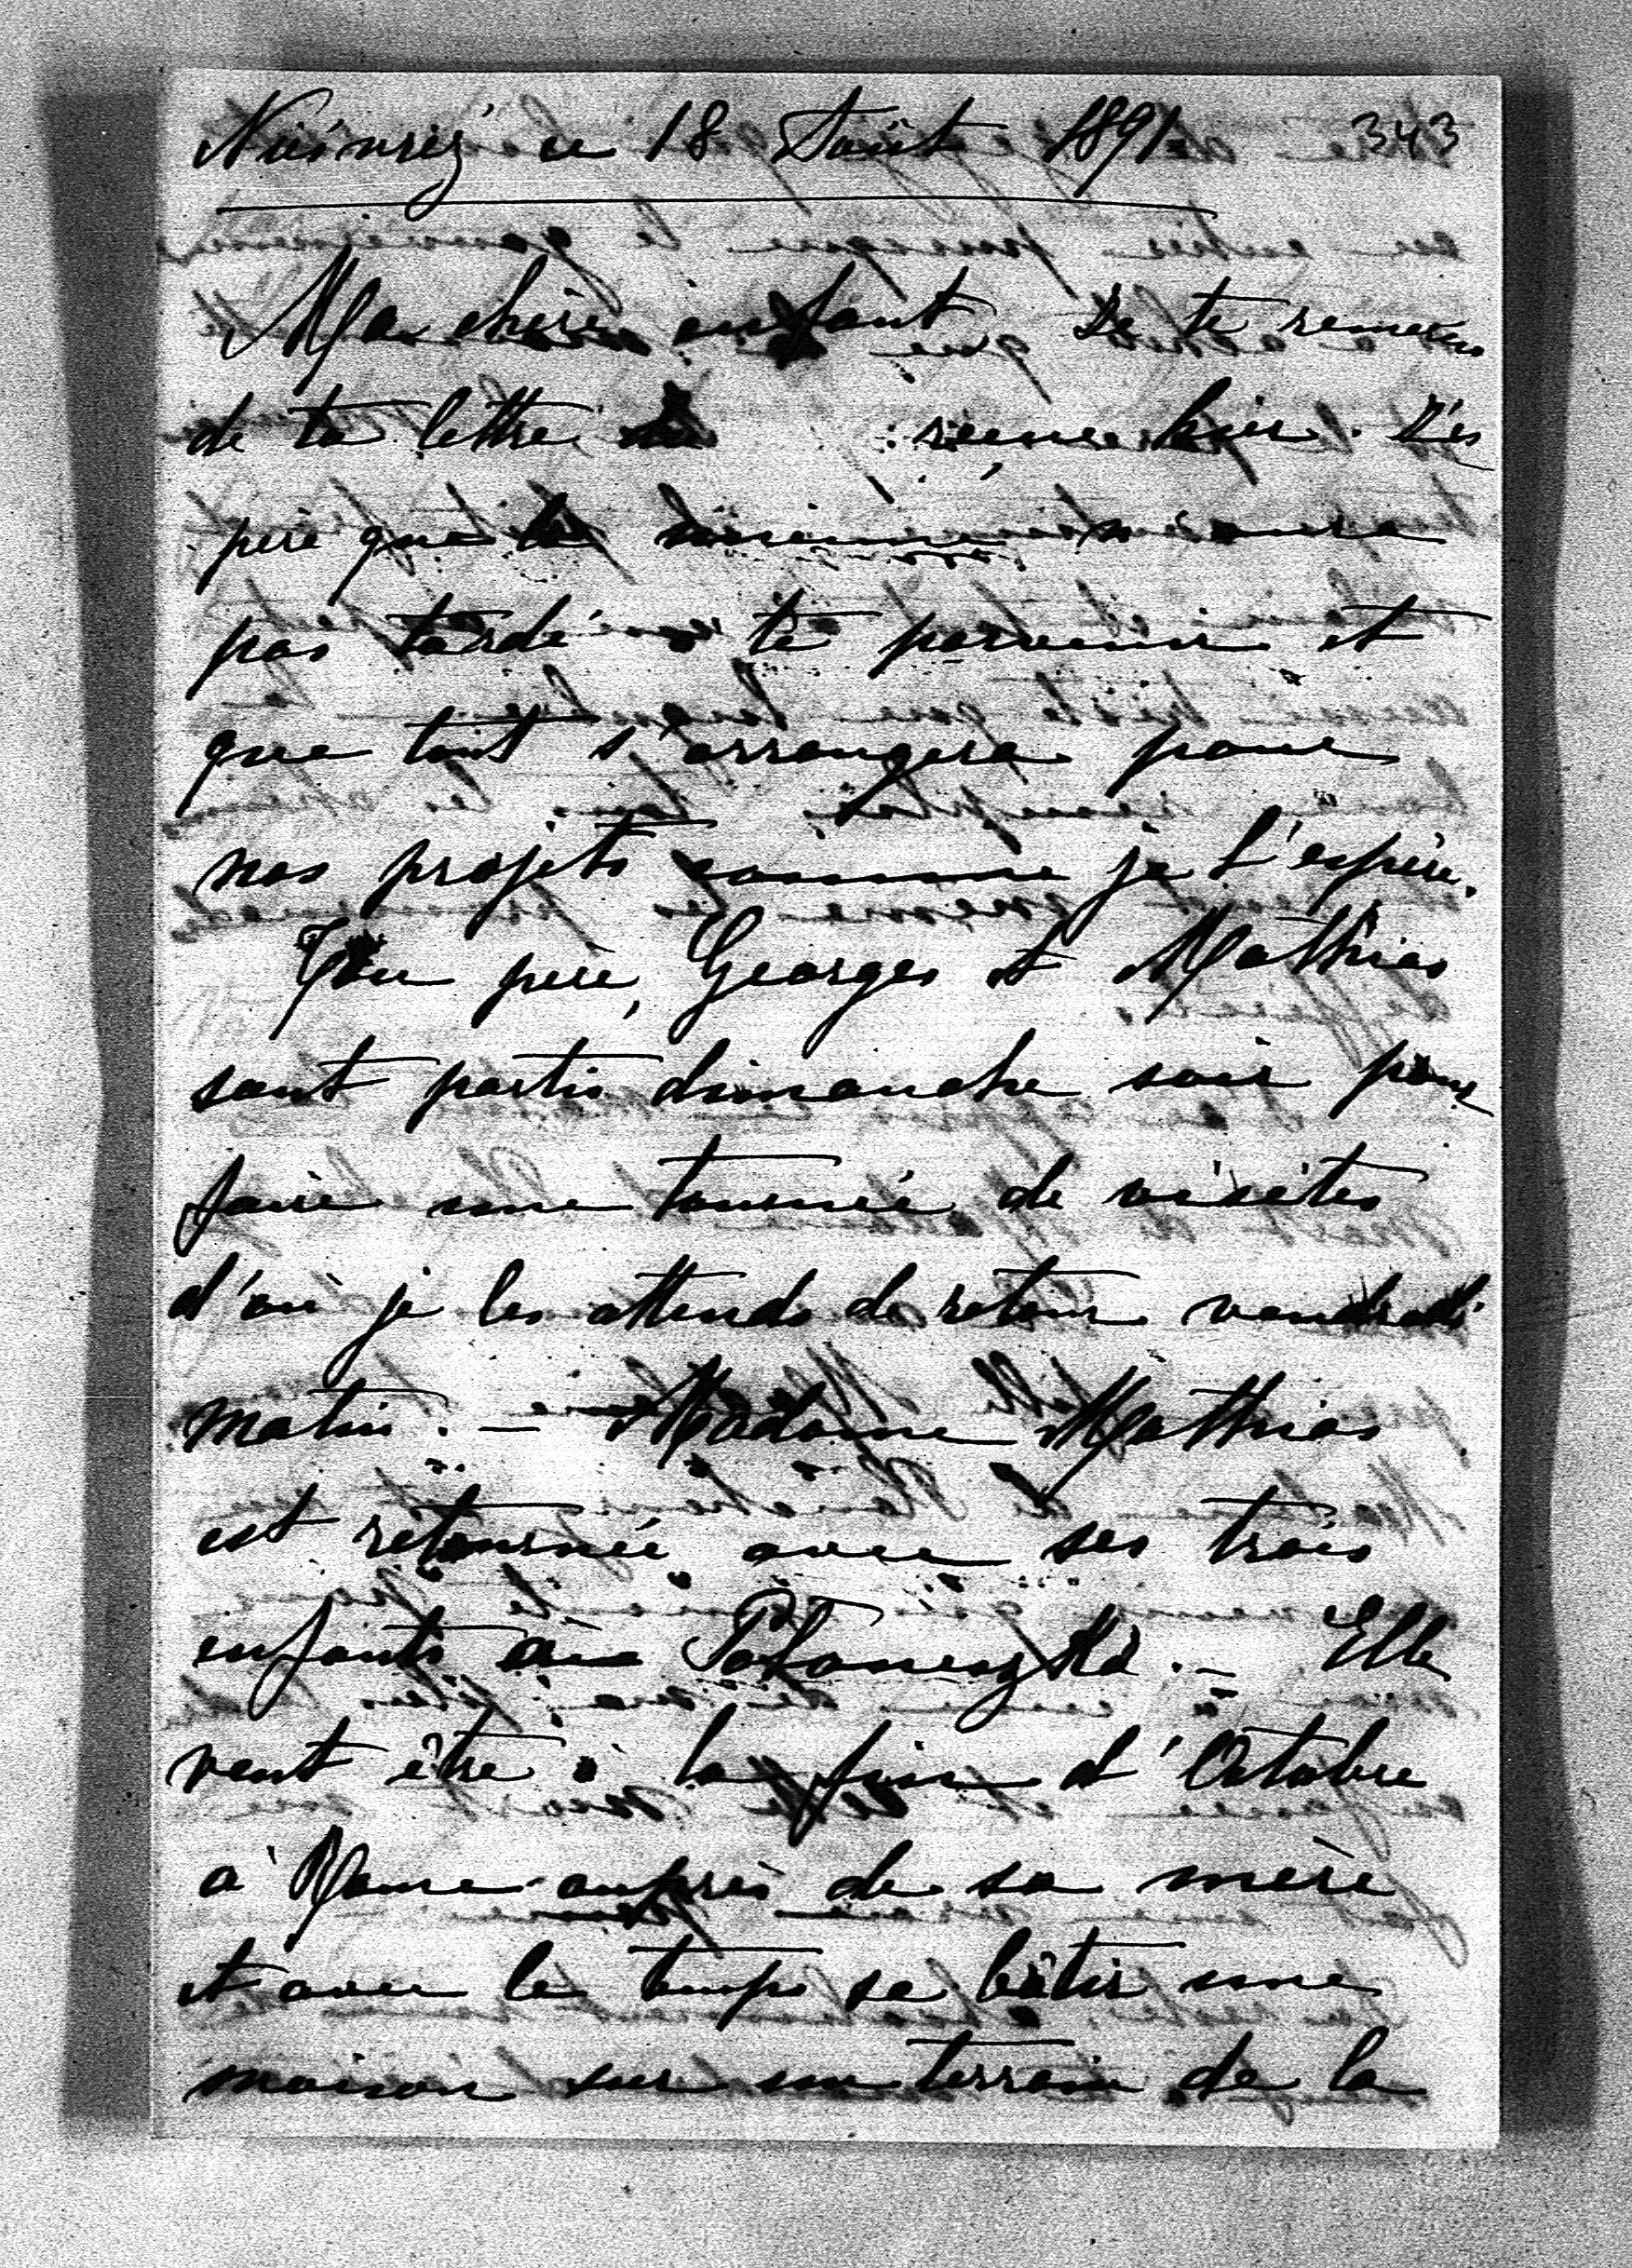 Nieswież ce 18 Août 1891 343
Ma chère enfant, Je te remercie
de ta lettre reçue hier. J'es
père que la mienne n'aura
pas tardé à te parvenir et
que tout s'arrangera pour
nos projets comme je l'espère.
Ton père, Georges et Mathias
sont partis dimanche soir pour
faire une tournée de visites
d'où je les attends de retour vendredi
matin. — Madame Mathias
est retournée avec ses trois
enfants au . — Elle
veut être à la fin d'Octobre
à Rome auprès de sa mère
et avec le temps se bâtir une
maison sur un terrain de la